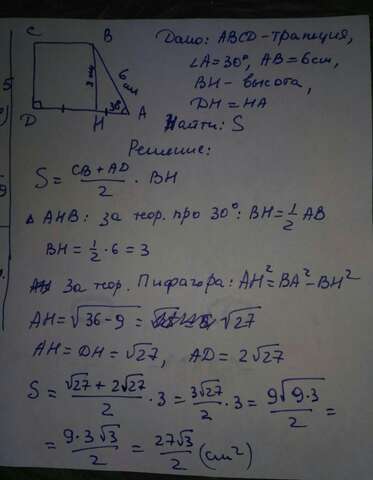 C B
6 см
3 см
30°
D H A
Дано: ABCD - трапеция,
∠A = 30°, AB = 6см,
BH - высота,
DH = HA
Найти: S
Решение:
S = CB + AD / 2 · BH
Δ AHB: за нор. про 30°: BH = 1/2 AB
BH = 1/2 · 6 = 3
За нор. Пифагора: AH² = BA² - BH²
AH = √36 - 9 = √27
AH = DH = √27, AD = 2√27
S = √27 + 2√27 / 2 · 3 = 3√27 / 2 · 3 = 9√9·3 / 2 =
= 9·3√3 / 2 = 27√3 / 2 (см²)